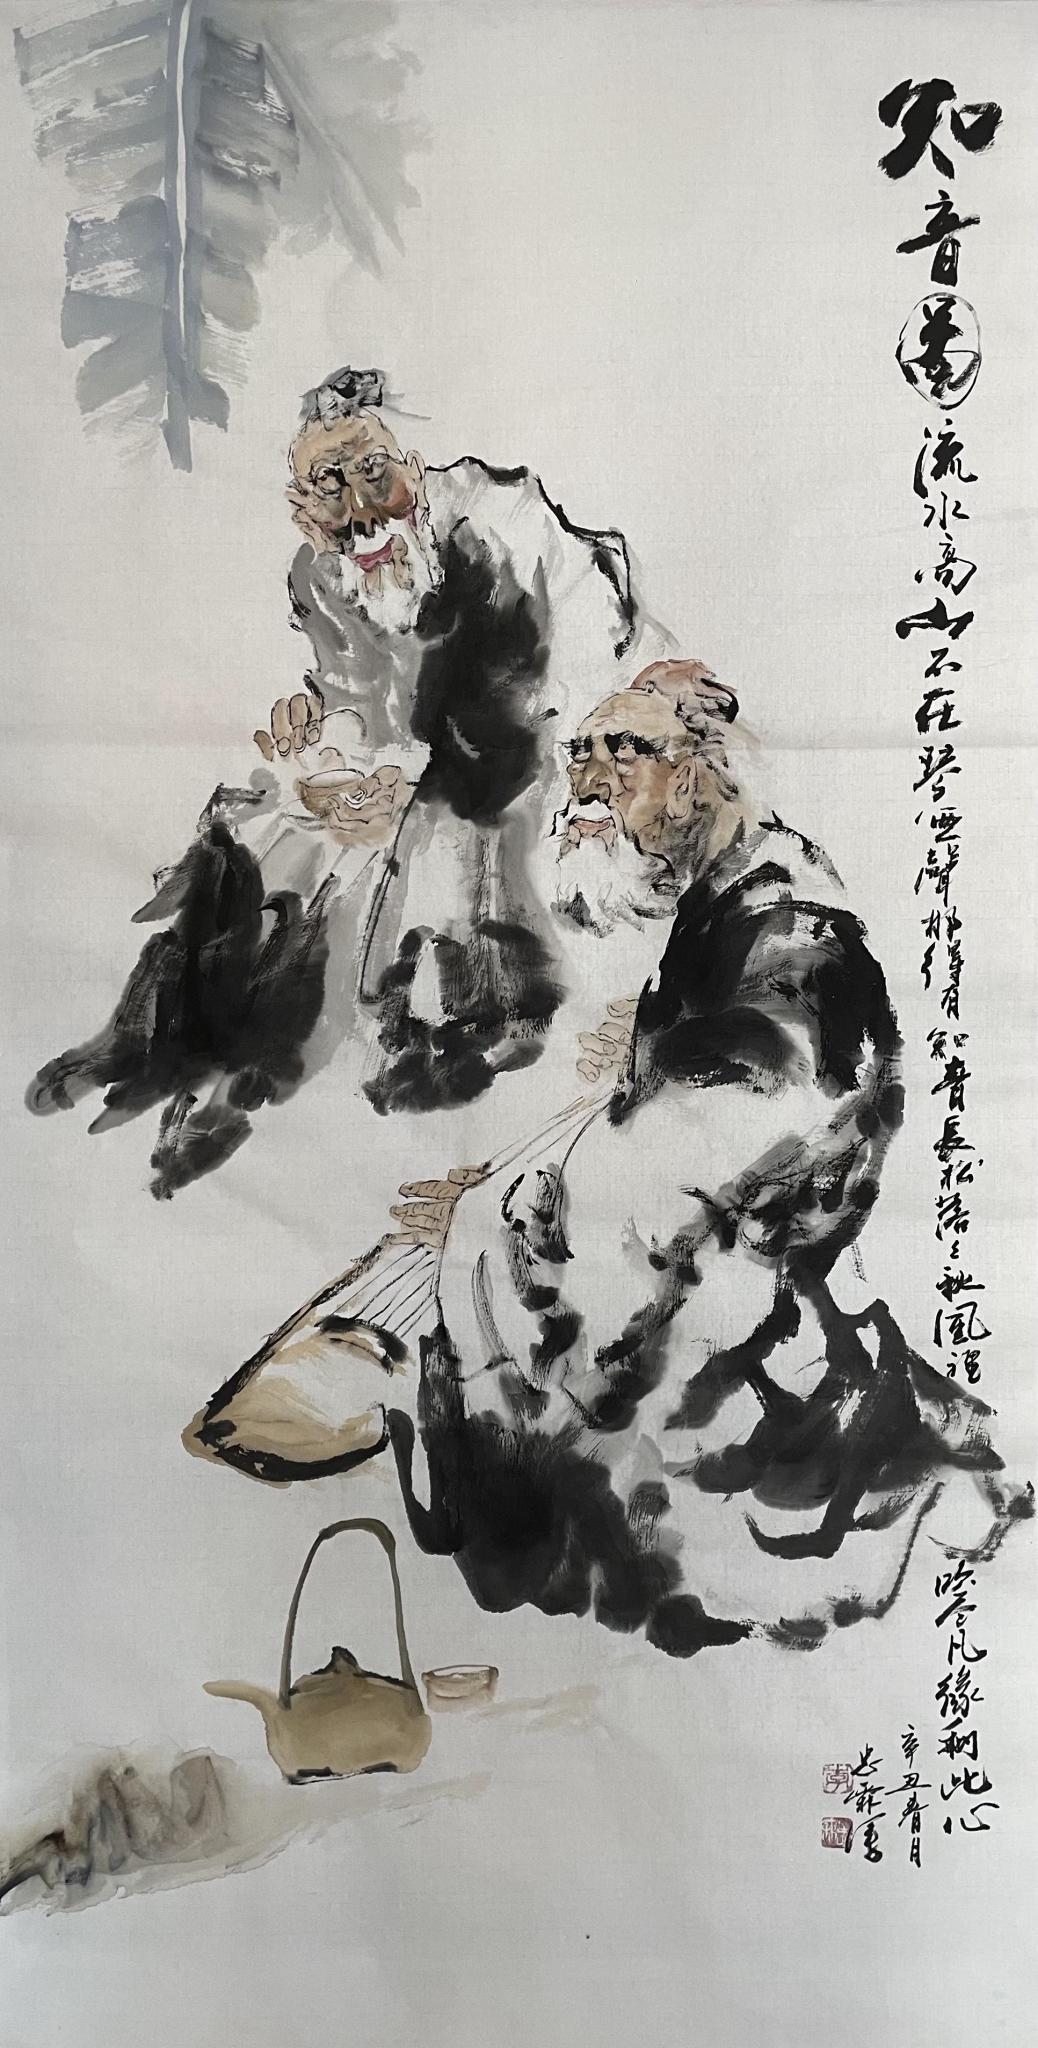 知音圖
流水高山不在琴
無聲那得有知音長松落々秋風裡
吟尽凡緣利此心
辛丑春月
忠霖寫